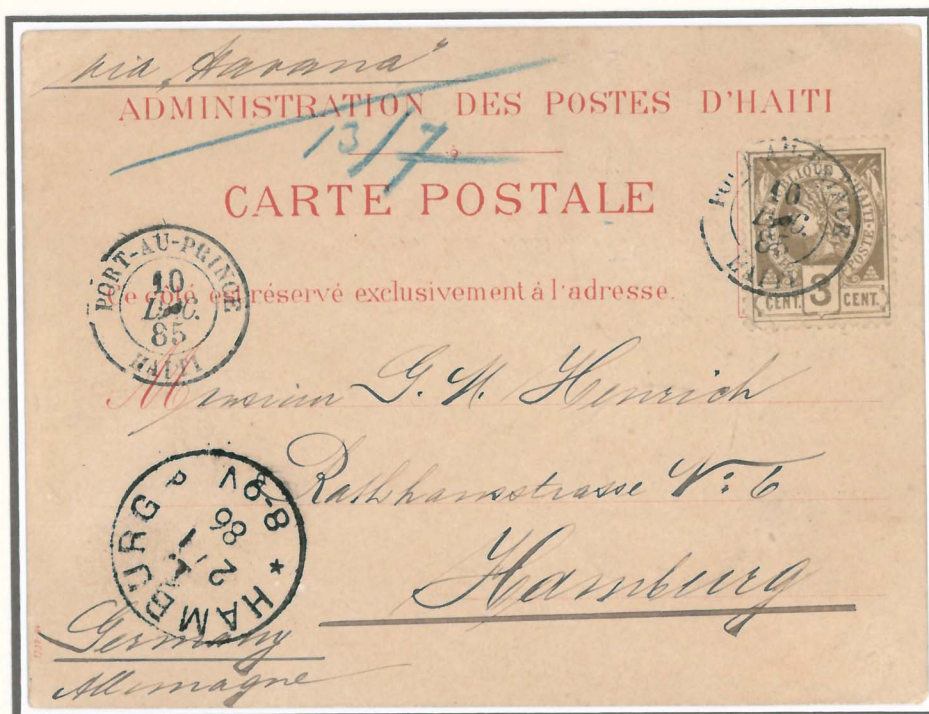 via „Havana"
ADMINISTRATION DES POSTES D'HAITI
13/7
CARTE POSTALE
PORT-AU-PRINCE
10
DÉC.
85
HAITI
RÉPUBLIQUE D'HAITI
POSTE
CENT. 3 CENT.
PORT-AU-PRINCE
10
DÉC.
85
HAITI
Ce coté est réservé exclusivement á l'adresse.
Monsieur G. M. Henrich
Rathhausstrasse No: 6
Hamburg
* HAMBURG P
2/1
86
8-9V
Germany
Allemagne